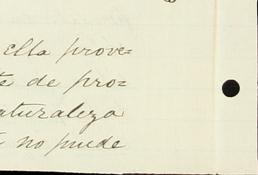 ella prove=
te de pro=
naturaleza
no puede